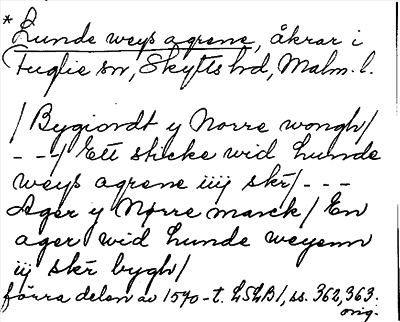 * Lunde weys agrene, åkrar i
Fuglie sn, Skytts hd, Malm. l.
/ Bygiordt y Norre wongh /
- - - / Ett sticke wid Lunde
weys agrene iiij skr / - - -
Ager y Nørre marck / En
ager wid Lunde weyenn
iij skr bygh /
förra delen av 1570-t. LSLB 1, ss. 362, 363.
orig.